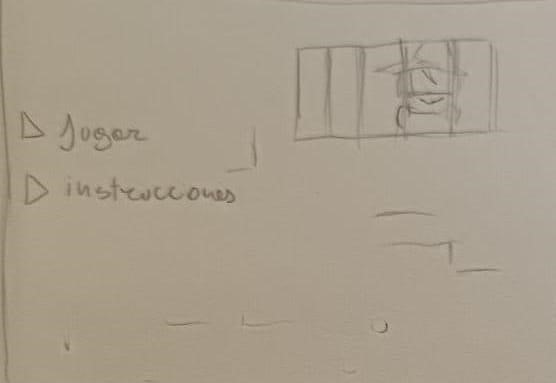 Jugar
instrucciones